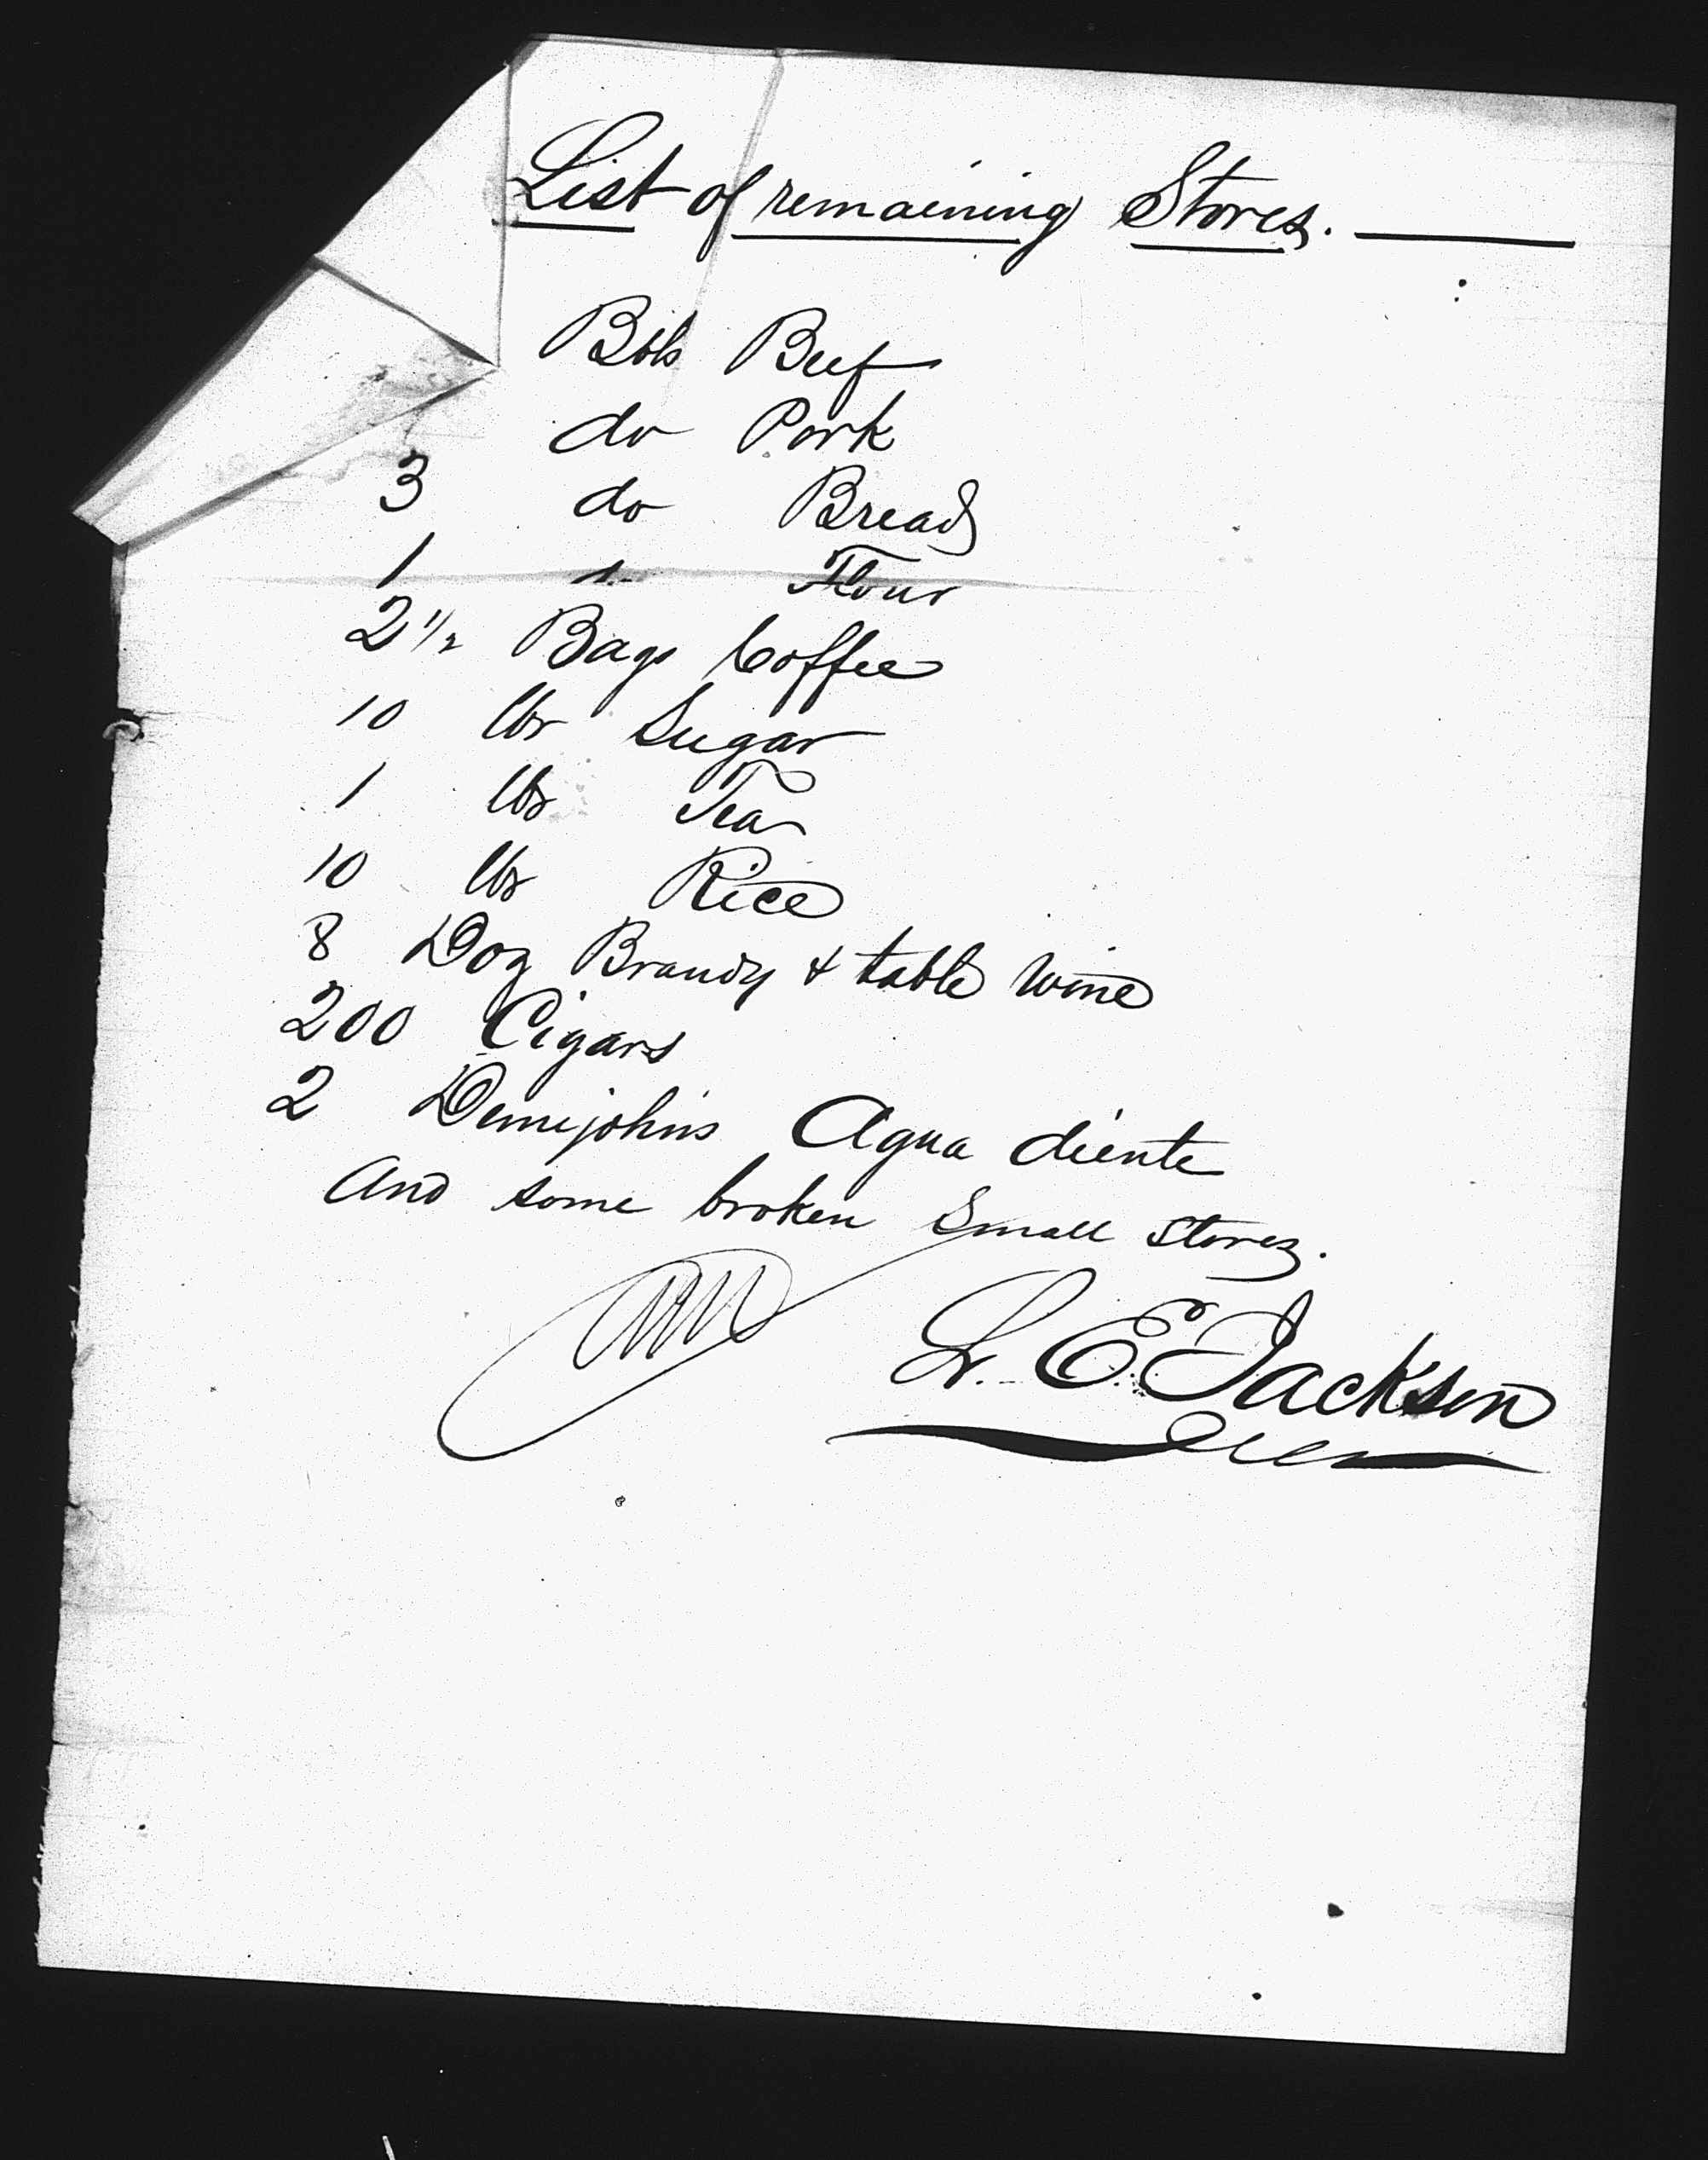 List of remaining Stores.
Bbls Beef
do Pork
3 do Bread
1 " Flour
2 1/2 Bags Coffee
10 lbs Sugar
1 lbs Tea
10 lbs Rice
8 Doz Brandy & table wine
200 Cigars
2 Demijohns Agua diente
And some broken Small Stores.
L. E. Jackson